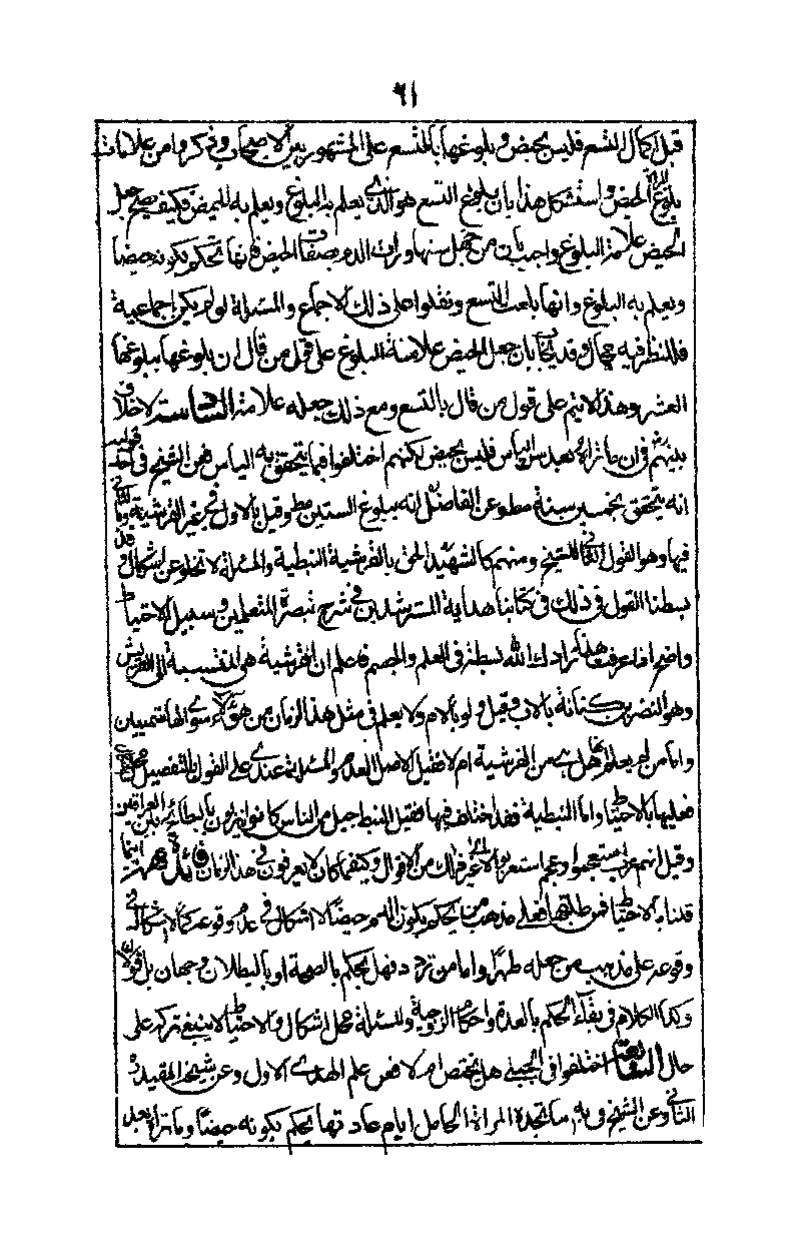 ٦١
قبل اكمال التسع فليس بحيض وبلوغها بالتسع على المشهور بين الاصحاب وذكروا من علامات
بلوغ المراة الحيض واستشكل هذا بان بلوغ التسع هو الذى يعلم به البلوغ ويعلم به الحيض فكيف يصح جعل
الحيض علامة البلوغ واجيب بان من جهل سنها ورات الدم بصفات الحيض فانها تحكم بكونه حيضا
ويعلم به البلوغ وانها بلغت التسع ونقلوا على ذلك الاجماع والمسئلة لو لم يكن اجماعية
فللنظر فيه مجال وقد يجاب بان جعل الحيض علامة البلوغ على قول من قال ان بلوغها ببلوغها
العشر وهذا لا يتم على قول من قال بالتسع ومع ذلك جعله علامة السادسة لا خلاف
بينهم فى ان ما تراه بعد سن الياس فليس بحيض لكنهم اختلفوا فيما يتحقق به الياس فعن الشيخ فى احد قوليه
انه يتحقق بخمسين سنة مط وعن الفاضل انه ببلوغ الستين مط وقيل بالاول فى غير القرشية وبالثانى
فيها وهو القول الثانى للشيخ ومنهم كالشهيد الحق بالقرشية النبطية والمسئلة لا تخلو عن اشكال وقد
بسطنا القول فى ذلك فى كتابنا هداية المسترشدين فى شرح تبصرة المتعلمين وسبيل الاحتياط
واضح اذا عرفت هذا زادك الله بسطة فى العلم والجسم فاعلم ان القرشية هى المنتسبة الى القريش
وهو النضر بن كنانة بالاب وقيل ولو بالام ولا يعلم فى مثل هذا الزمان من هؤلاء سوى الهاشميين
واما من لم يعلم انها هل هى من القرشية ام لا فقيل الاصل العدم والمسئلة عندى على القول بالتفصيل محل
فعليها بالاحتياط واما النبطية فقد اختلف فيها فقيل النبط جيل من الناس كانوا ينزلون بالبطائح بين العراقين
وقيل انهم عرب استعجموا وعجم استعربوا الى غير ذلك من الاقوال وكيفما كان لا يعرفون فى هذا الزمان
قلناه بالاحتياط فمن طلقها فعلى مذهب من يحكم بكون الدم حيضا لا اشكال فى عدم وقوعه كما لا اشكال فى
وقوعه على مذهب من جعله طهرا واما من تردد فهل يحكم بالصحة او بالبطلان وجهان بل قولان
وكذا الكلام فى بقاء الحكم بالعدة واحكام الزوجية والمسئلة محل اشكال والاحتياط لا ينبغى تركه على
حال السابعة اختلفوا فى الحبلى هل تحيض ام لا فعن علم الهدى الاول وعن شيخه المفيد ره
الثانى وعن الشيخ فى يه ما تجده المراة الحامل ايام عادتها يحكم بكونه حيضا وما تراه بعد